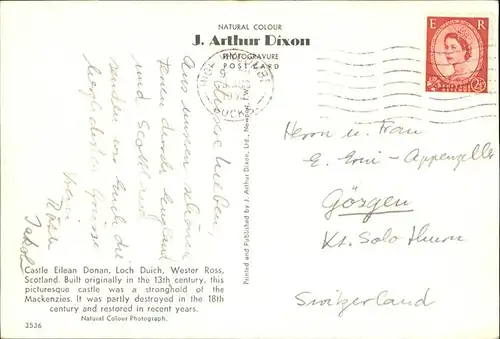 NATURAL COLOUR
J. Arthur Dixon
PHOTOGRAVURE
POST CARD
E R
Ihr Lieben,
Aus unsern schönen
Ferien durch England
und Scottland
senden wir Euch die
herzlichsten Grüsse
Eure
Jakob
Herrn u. Frau
E. Erni - Appenzeller
Gösgen
Kt. Solothurn
Switzerland
Printed and Published by J. Arthur Dixon, Ltd., Newport, I.W.
Castle Eilean Donan, Loch Duich, Wester Ross,
Scotland. Built originally in the 13th century, this
picturesque castle was a stronghold of the
Mackenzies. It was partly destroyed in the 18th
century and restored in recent years.
Natural Colour Photograph.
3536